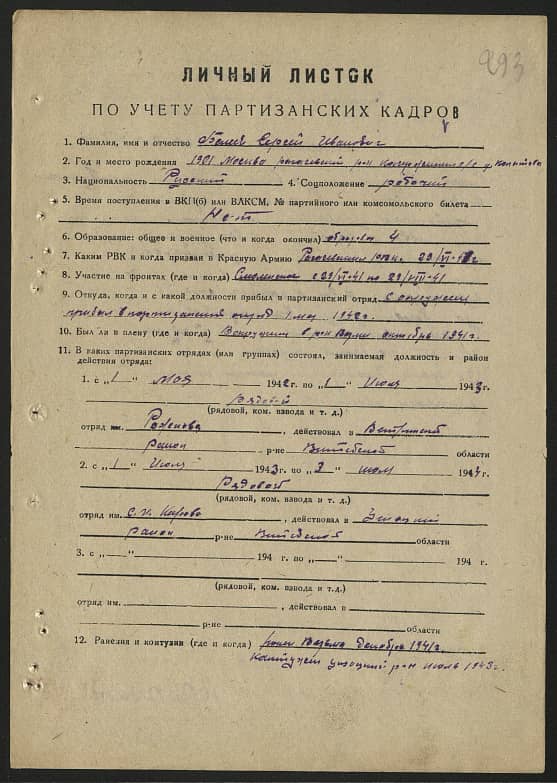 293
ЛИЧНЫЙ ЛИСТОК
ПО УЧЕТУ ПАРТИЗАНСКИХ КАДРОВ
1. Фамилия, имя и отчество Белев Сергей Иванович
2. Год и место рождения 1901 Москва р-н с/с д.
3. Национальность Русский 4. Соцположение рабочий
5. Время поступления в ВКП(б) или ВЛКСМ, № партийного или комсомольского билета
Нет
6. Образование: общее и военное (что и когда окончил) 4
7. Каким РВК и когда призван в Красную Армию 23/VI-41г
8. Участие на фронтах (где и когда) Смоленское с 23/VI-41 по 23/VIII-41
9. Откуда, когда и с какой должности прибыл в партизанский отряд С
прибыл в партизанский отряд 1 мая 1942г.
10. Был ли в плену (где и когда) В окружении в р-не октябрь 1941г.
11. В каких партизанских отрядах (или группах) состоял, занимаемая должность и район
действия отряда:
1. с "1" мая 1942 г. по "1" Июля 1943г.
Рядовой
(рядовой, ком. взвода и т. д.)
отряд им. , действовал в Ветринский
район р-не Витебской области
2. с "1" Июля 1943 г. по "3" июл 1944 г.
Рядовой
(рядовой, ком. взвода и т. д.)
отряд им. С.М. Кирова , действовал в Ушацкий
район р-не Витебской области
3. с " " 194 г. по " " 194 г.
(рядовой, ком. взвода и т. д.)
отряд им. , действовал в
р-не области
12. Ранения и контузии (где и когда) ранен Вязьма декабрь 1941г.
Контужен Ушацкий р-н июль 1943г.